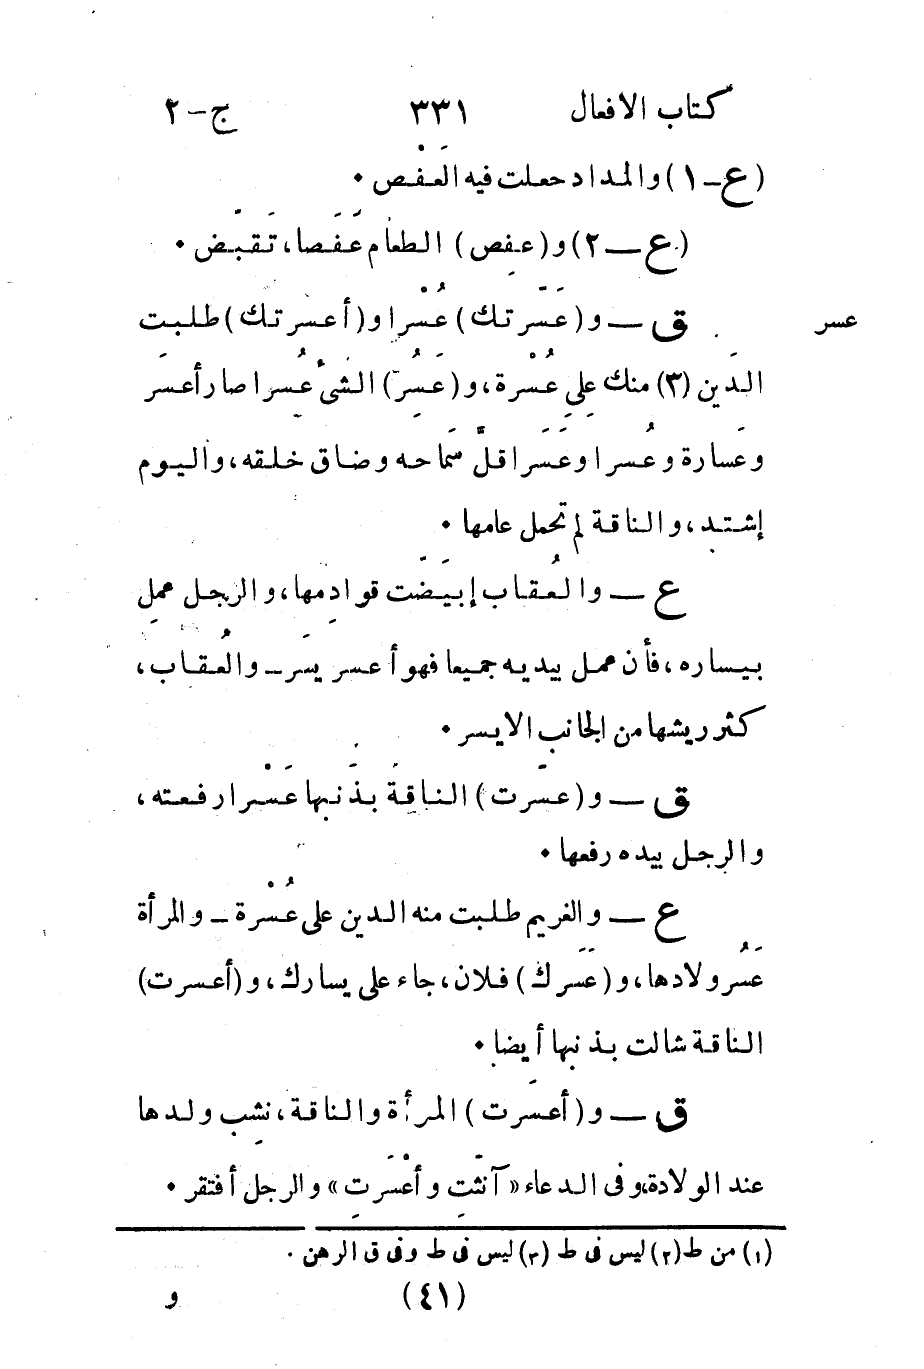 كتاب الافعال ٣٣١ ج-٢
(ع-١) والمداد جعلت فيه العَفْص •
(ع - ٢) و(عفِص) الطعام عَفَصا، تَقَبّض •
عسر
ق - و(عَسَرتك) عُسْرا و(أعسرتك) طلبت
الدَين (٣) منك على عُسْرة، و(عَسُر) الشئُ عُسرا صار أعسَر
وعَسارة وعُسرا وعَسَرا قلّ سماحه وضاق خلقه، واليوم
إشتد، والناقة لم تحمل عامها •
ع - والعُقاب إبيَضّت قوادِمها، والرجل عمِل
بيساره، فأن عمل بيديه جميعا فهو أعسر يسَر - والعُقاب،
كثر ريشها من الجانب الايسر •
ق - و(عسَرت) الناقةُ بذَنبها عَسْرا رفعته،
والرجل بيده رفعها •
ع - والغريم طلبت منه الدين على عُسْرة - والمرأة
عَسُر ولادها، و(عَسَرك) فلان، جاء على يسارك، و(أعسرت)
الناقة شالت بذنبها أيضا •
ق - و(أعسَرت) المرأة والناقة، نشِب ولدها
عند الولادة، وفى الدعاء «آنثَتِ وأعْسَرتِ» والرجل أفتقر •
(١) من ط (٢) ليس فى ط (٣) ليس فى ط وفى ق الرهن .
(٤١) و